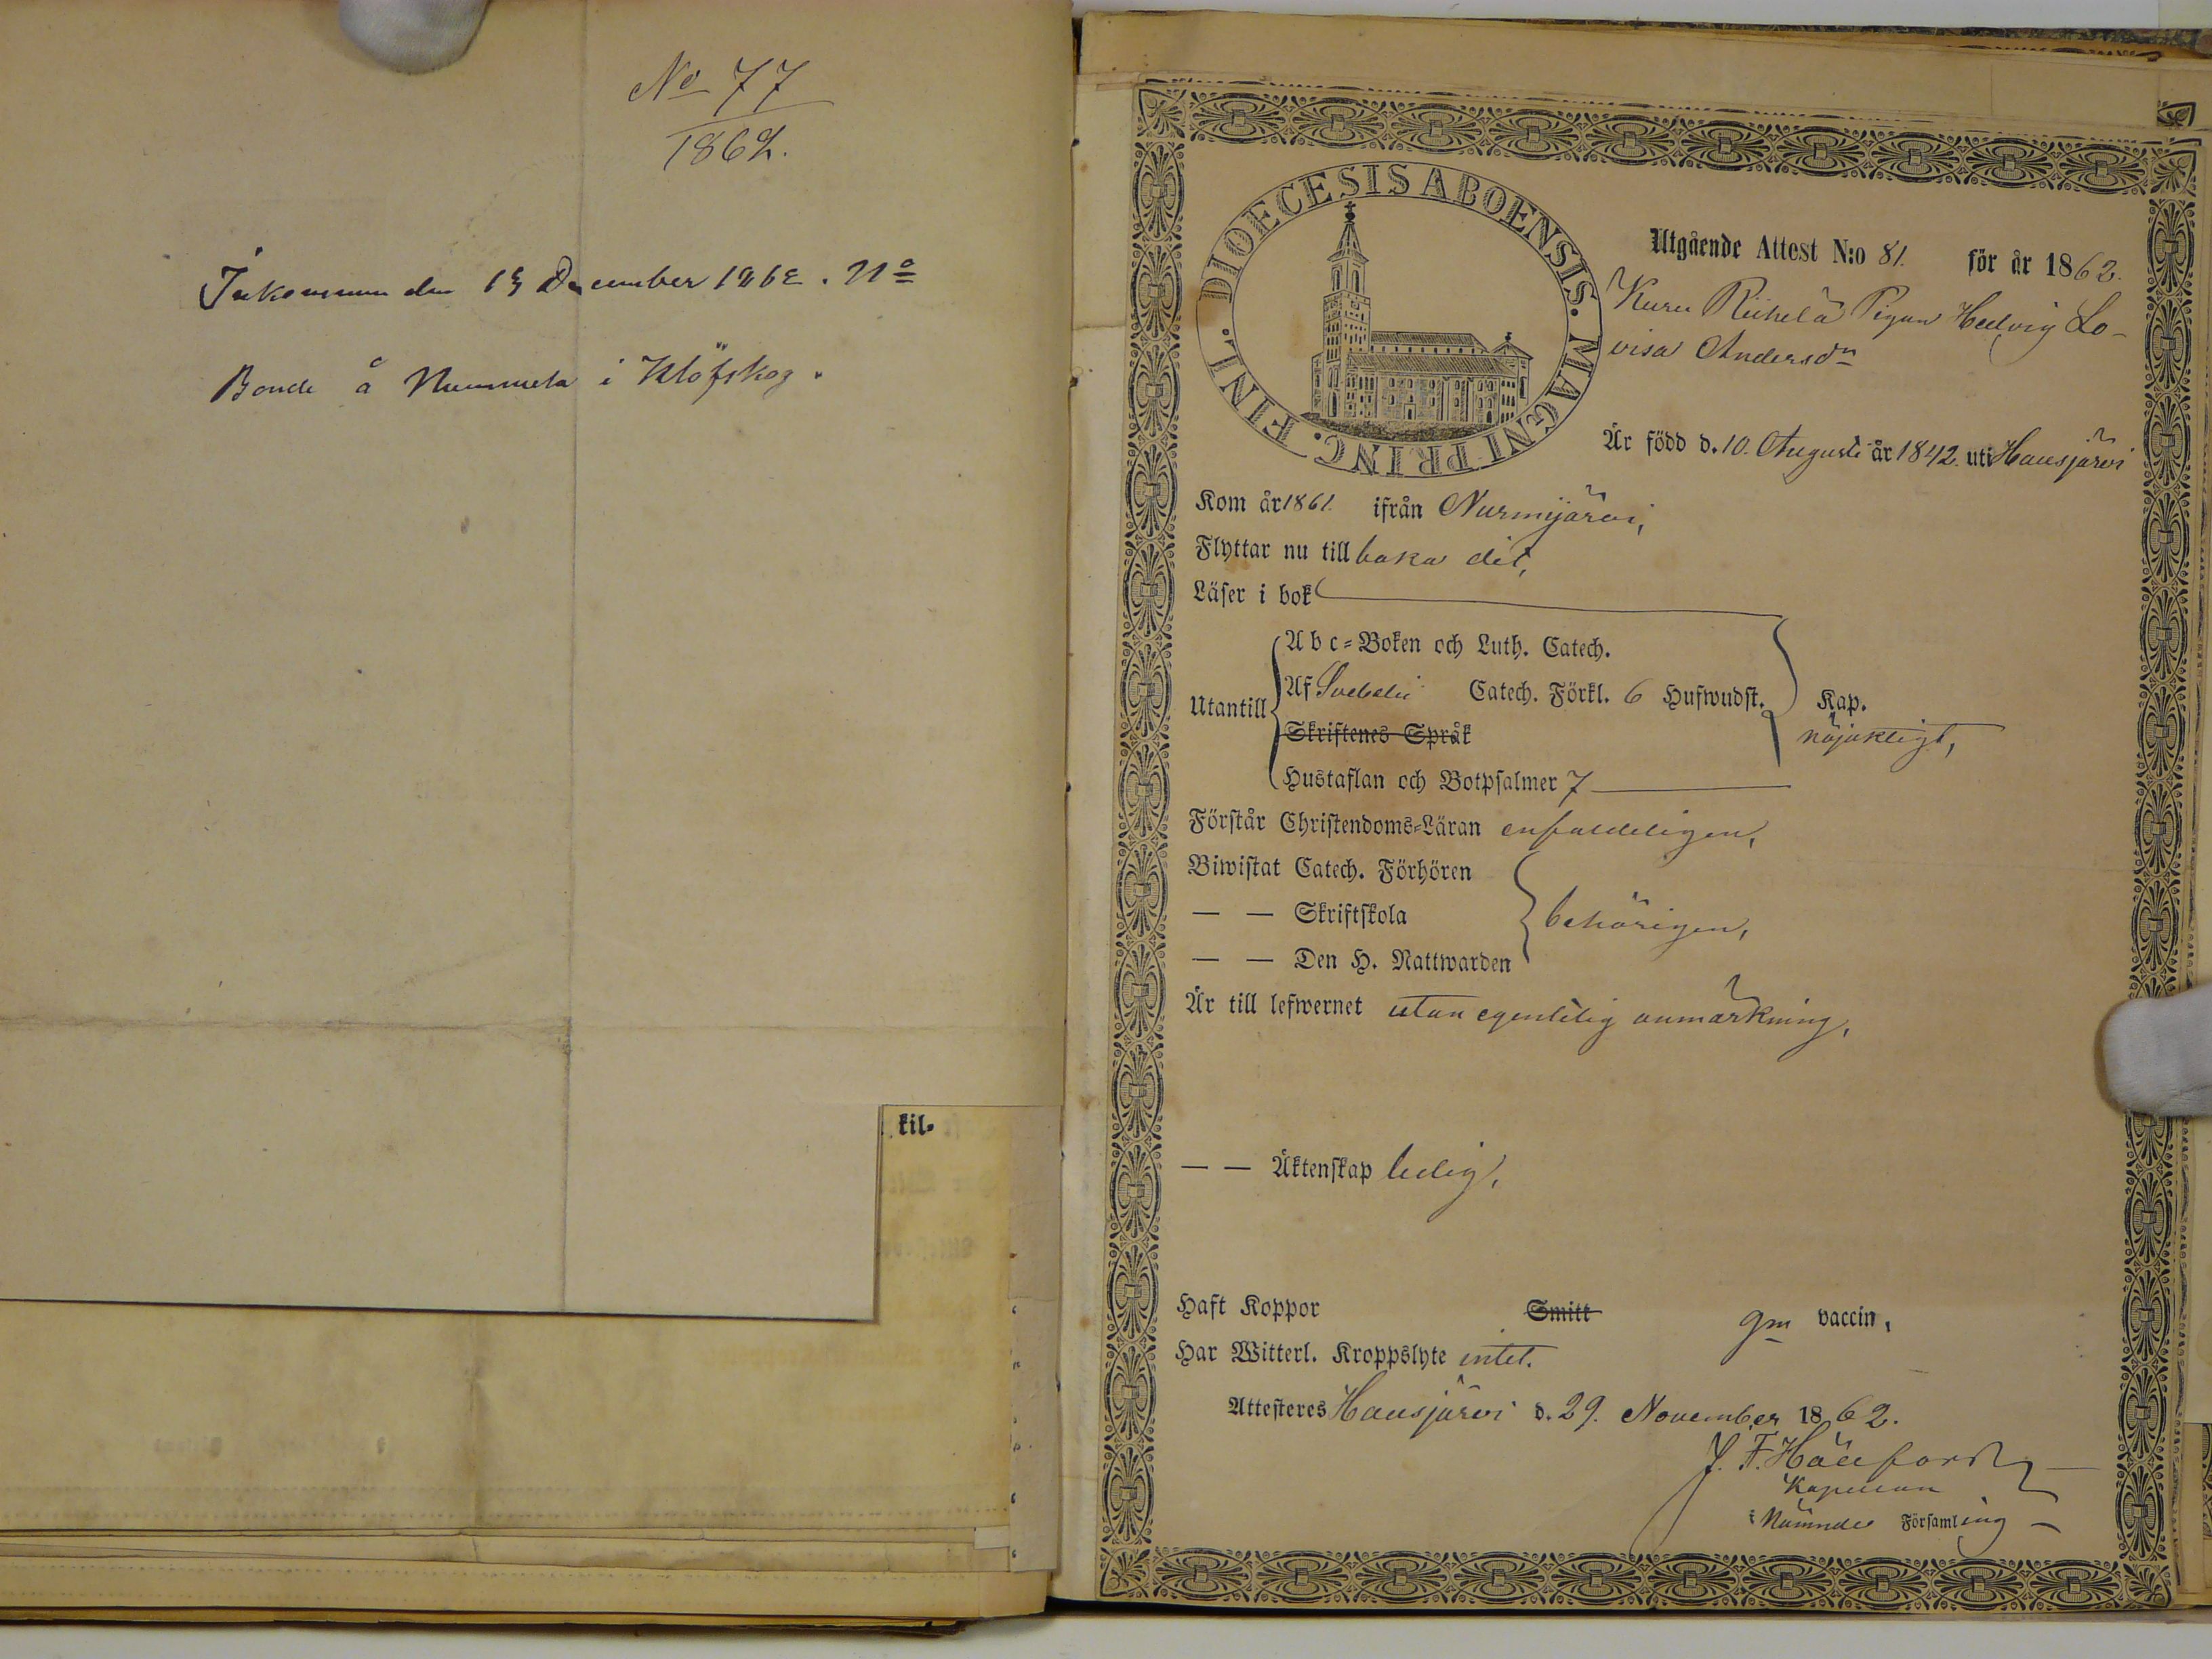 No 77
1862.
Inkommen den 13 December 1862. No
Bonde å Nummela i Klöfskog.
kil.
DIOECESIS ABOENSIS. MAGNI PRINC. FINL.
Utgående Attest N:o 81. för år 1862.
Kuru Riihelä Pigan Hedvig Lo-
visa Andersdn
Är född d. 10. Augusti år 1842. uti Hausjärvi
Kom år 1861. ifrån Nurmijärvi,
Flyttar nu till baka dit,
Läser i bok
Abc-Boken och Luth. Catech.
Utantill Af Svebelii Catech. Förkl. 6 Hufwudst. Kap.
Skriftenes Språk nöjaktigt,
Hustaflan och Botpsalmer 7
Förstår Christendoms-Läran enfaldeligen,
Biwistat Catech. Förhören
— — Skriftskola behörigen,
— — Den H. Nattwarden
Är till lefwernet utan egentelig anmärkning,
— — Äktenskap ledig,
Haft Koppor Smitt gm vaccin,
Har Witterl. Kroppslyte intet.
Attesteres Hausjärvi d. 29. November 1862.
J. F.
Kapellan
i Nämnde Församling